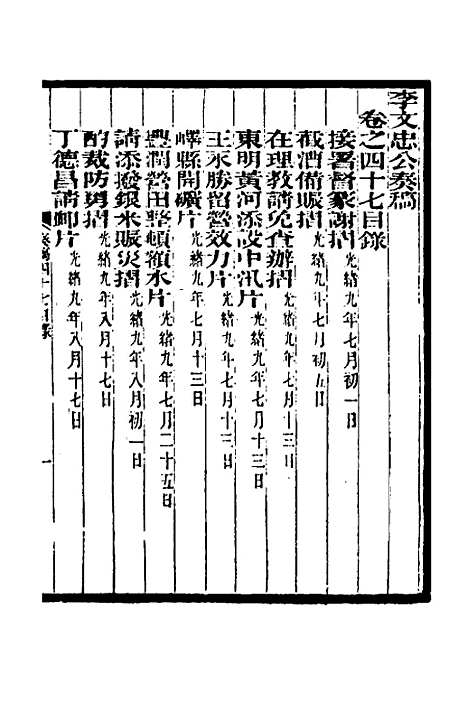 李文忠公奏稿
卷之四十七目錄
接署督篆謝摺 光緒九年七月初一日
截漕備賑摺 光緒九年七月初五日
在理教請免查辦摺 光緒九年七月十三日
東明黃河添設中汛片 光緒九年七月十三日
王永勝留營效力片 光緒九年七月十三日
嶧縣開礦片 光緒九年七月十三日
豐潤營田整頓額水片 光緒九年七月二十五日
請添撥銀米賑災摺 光緒九年八月初一日
酌裁防勇摺 光緒九年八月十七日
丁德昌請卹片 光緒九年八月十七日
奏稿四十七目錄 一